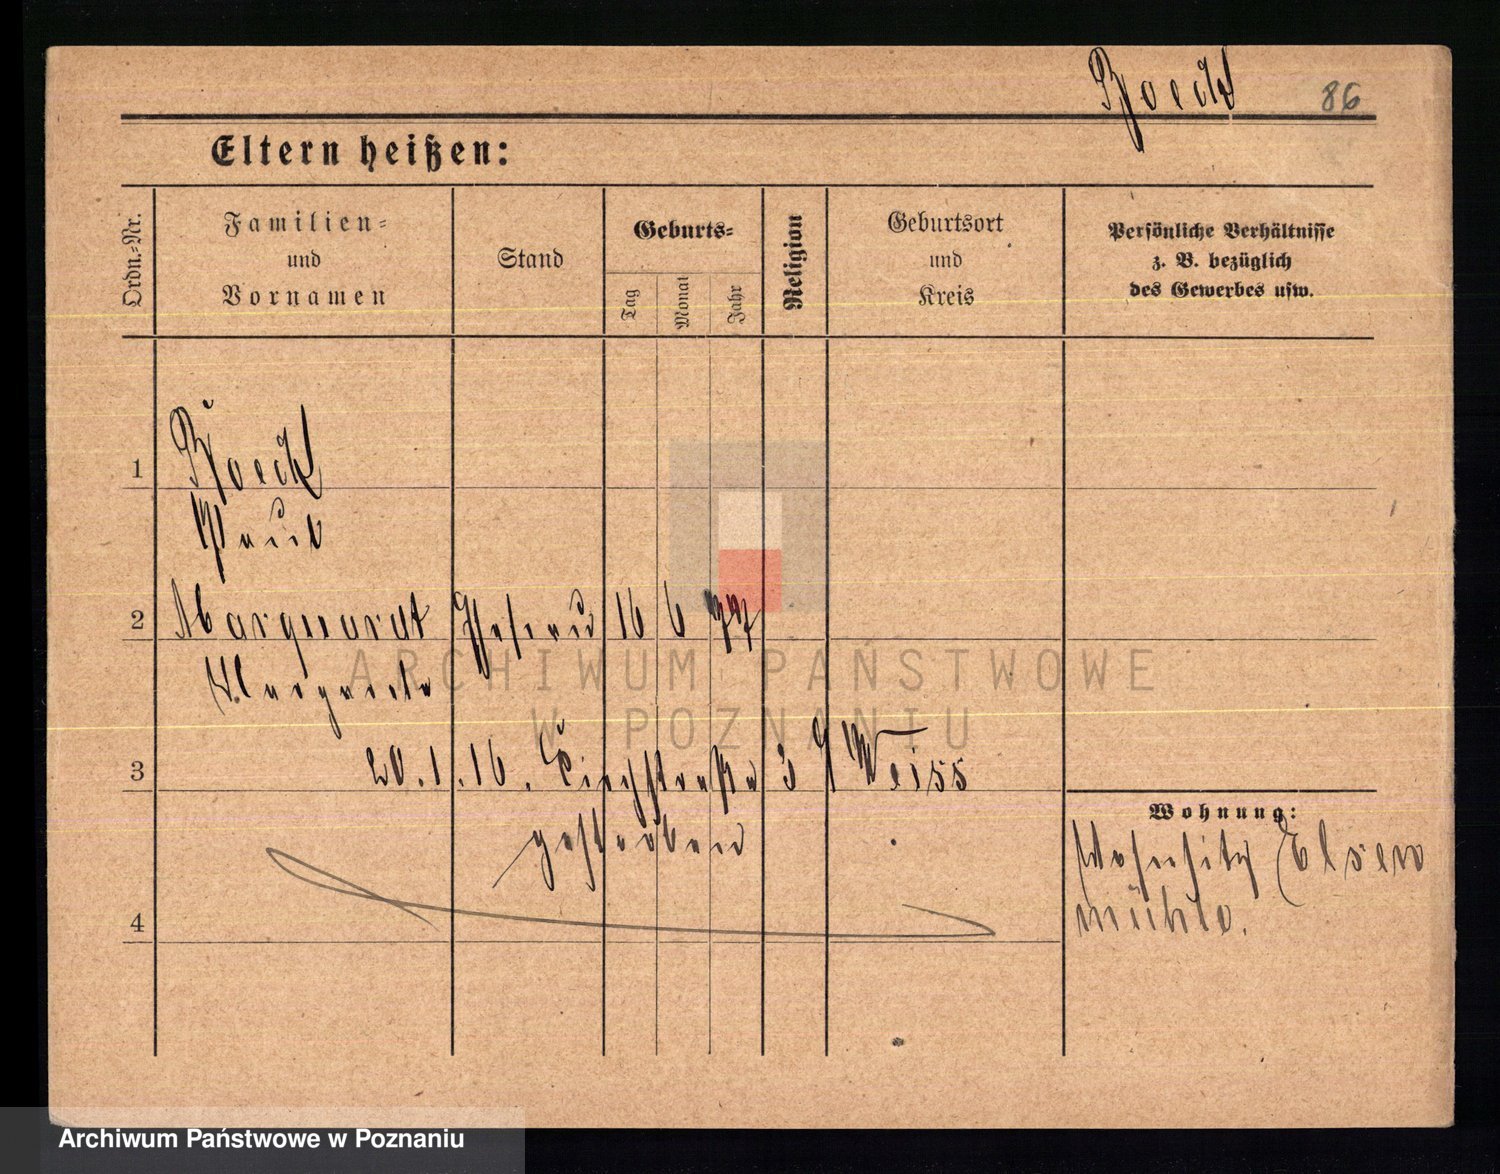 Boeck 86
Eltern heißen:
Ordn.-Nr.
Familien-
und
Vornamen
Stand
Geburts-
Tag
Monat
Jahr
Religion
Geburtsort
und
Kreis
Persönliche Verhältnisse
z. B. bezüglich
des Gewerbes usw.
1 Boeck
Paul
2 Marquardt Ehefrau 16 6 77
Margarete
3 20.1.16. Kirchstraße 3 Weiss
gestorben
Wohnung:
Wohnsitz Elsen
mühle.
4
ARCHIWUM PAŃSTWOWE
W POZNANIU
Archiwum Państwowe w Poznaniu